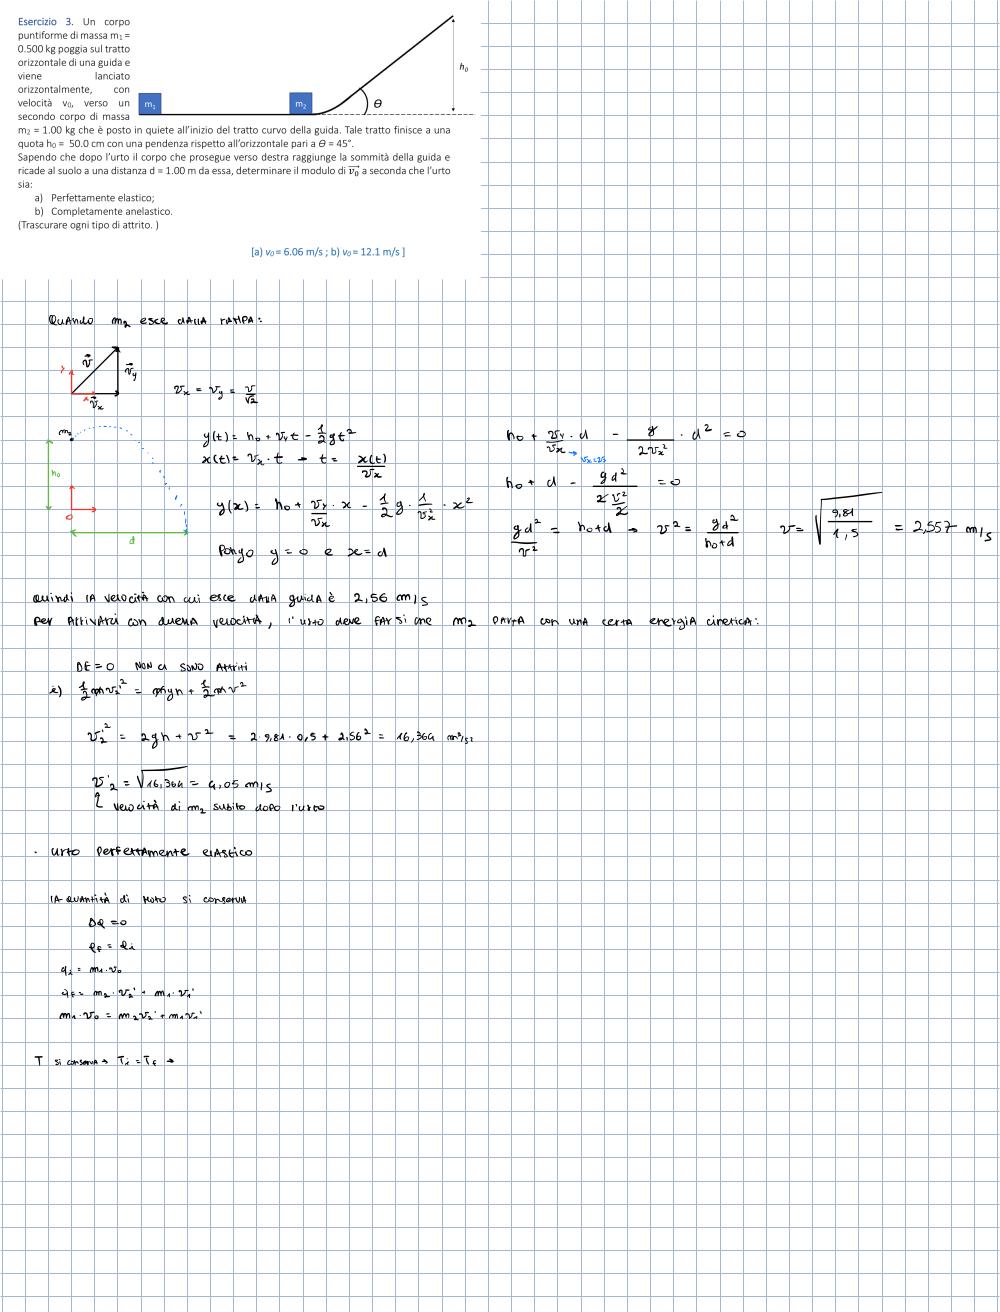 Esercizio 3. Un corpo
puntiforme di massa m₁ =
0.500 kg poggia sul tratto
orizzontale di una guida e
viene lanciato
orizzontalmente, con
velocità v₀, verso un
secondo corpo di massa
m₁
m₂
θ
h₀
m₂ = 1.00 kg che è posto in quiete all'inizio del tratto curvo della guida. Tale tratto finisce a una
quota h₀ = 50.0 cm con una pendenza rispetto all'orizzontale pari a θ = 45°.
Sapendo che dopo l'urto il corpo che prosegue verso destra raggiunge la sommità della guida e
ricade al suolo a una distanza d = 1.00 m da essa, determinare il modulo di v₀⃗ a seconda che l'urto
sia:
a) Perfettamente elastico;
b) Completamente anelastico.
(Trascurare ogni tipo di attrito. )
[a) v₀ = 6.06 m/s ; b) v₀ = 12.1 m/s ]
Quando m₂ esce dalla rampa:
y
v⃗
v⃗y
x
v⃗x
vx = vy = v/√2
m₂
h₀
O
d
y(t) = h₀ + vyt - 1/2 gt²
x(t) = vx · t → t = x(t)/vx
y(x) = h₀ + vy/vx · x - 1/2 g · 1/vx² · x²
Pongo y = 0 e x = d
h₀ + vy/vx · d - g/2vx² · d² = 0
h₀ + d - gd²/(2 v²/2) = 0
gd²/v² = h₀+d → v² = gd²/(h₀+d) v = √(9,81/1,5) = 2,557 m/s
Quindi la velocità con cui esce dalla guida è 2,56 m/s
Per arrivarci con quella velocità, l'urto deve far si che m₂ parta con una certa energia cinetica:
ΔE = 0 non ci sono attriti
1/2 mv₂'² = mgh + 1/2 mv²
v₂'² = 2gh + v² = 2·9,81·0,5 + 2,56² = 16,364 m²/s²
v'₂ = √16,364 = 4,05 m/s
velocità di m₂ subito dopo l'urto
· urto perfettamente elastico
la quantità di moto si conserva
ΔQ = 0
Qf = Qi
qi = m₁·v₀
qf = m₂·v₂' + m₁·v₁'
m₁·v₀ = m₂v₂' + m₁v₁'
T si conserva → Ti = Tf →